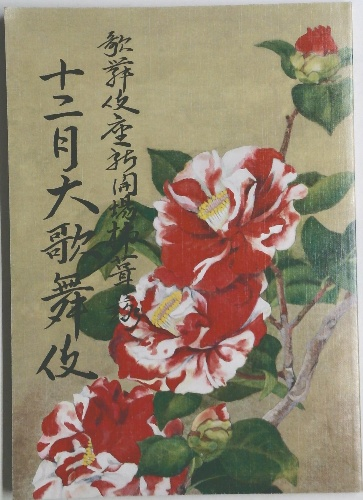 歌舞伎座新開場杮葺落
十二月大歌舞伎